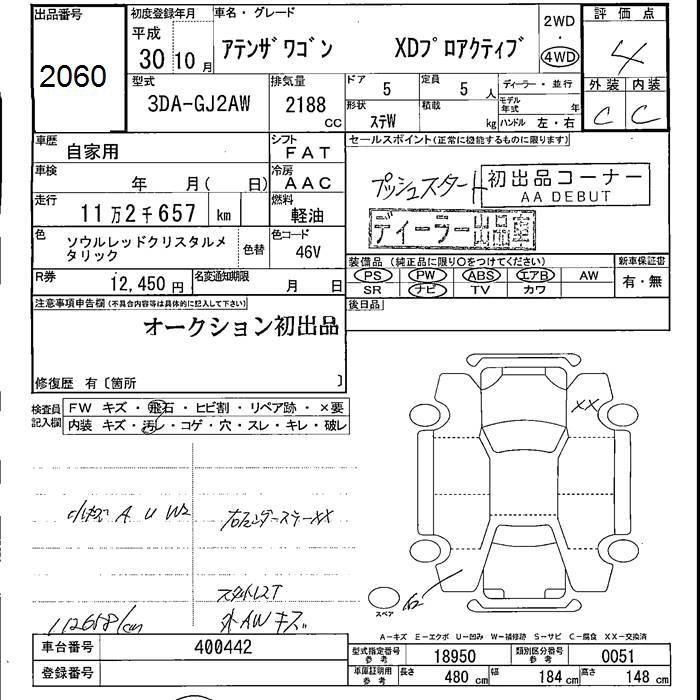 出品番号
2060
初度登録年月
平成
30年 10月
車名・グレード
アテンザワゴン XDプロアクティブ
2WD
・
4WD
評価点
4
型式
3DA-GJ2AW
排気量
2188
CC
ドア
5
定員
5人
形状
ステW
積載
kg
ディーラー・並行
モデル年式
年
ハンドル 左・右
外装 内装
C C
車歴
自家用
シフト
FAT
車検
年 月( 日)
冷房
AAC
走行
11万2千657 km
燃料
軽油
色
ソウルレッドクリスタルメタリック
色替
色コード
46V
R券
12,450円
名変通知期限
月 日
セールスポイント(正常に機能するものに限ります)
プッシュスタート
初出品コーナー
AA DEBUT
ディーラー出品車
装備品(純正品に限り○をつけてください)
PS PW ABS エアB AW
SR ナビ TV カワ
新車保証書
有・無
後日品
注意事項申告欄(不具合内容等は具体的に記入して下さい)
オークション初出品
修復歴 有〔箇所 〕
検査員記入欄
FW キズ・飛石・ヒビ割・リペア跡・×要
内装 キズ・汚レ・コゲ・穴・スレ・キレ・破レ
A U W2
XX
外AWキズ
112658km
XX
スペア
A-キズ E-エクボ U-凹み W-補修跡 S-サビ C-腐食 XX-交換済
車台番号
400442
登録番号
型式指定番号
参考
18950
類別区分番号
参考
0051
車庫証明用
参考
長さ
480 cm
幅
184 cm
高さ
148 cm